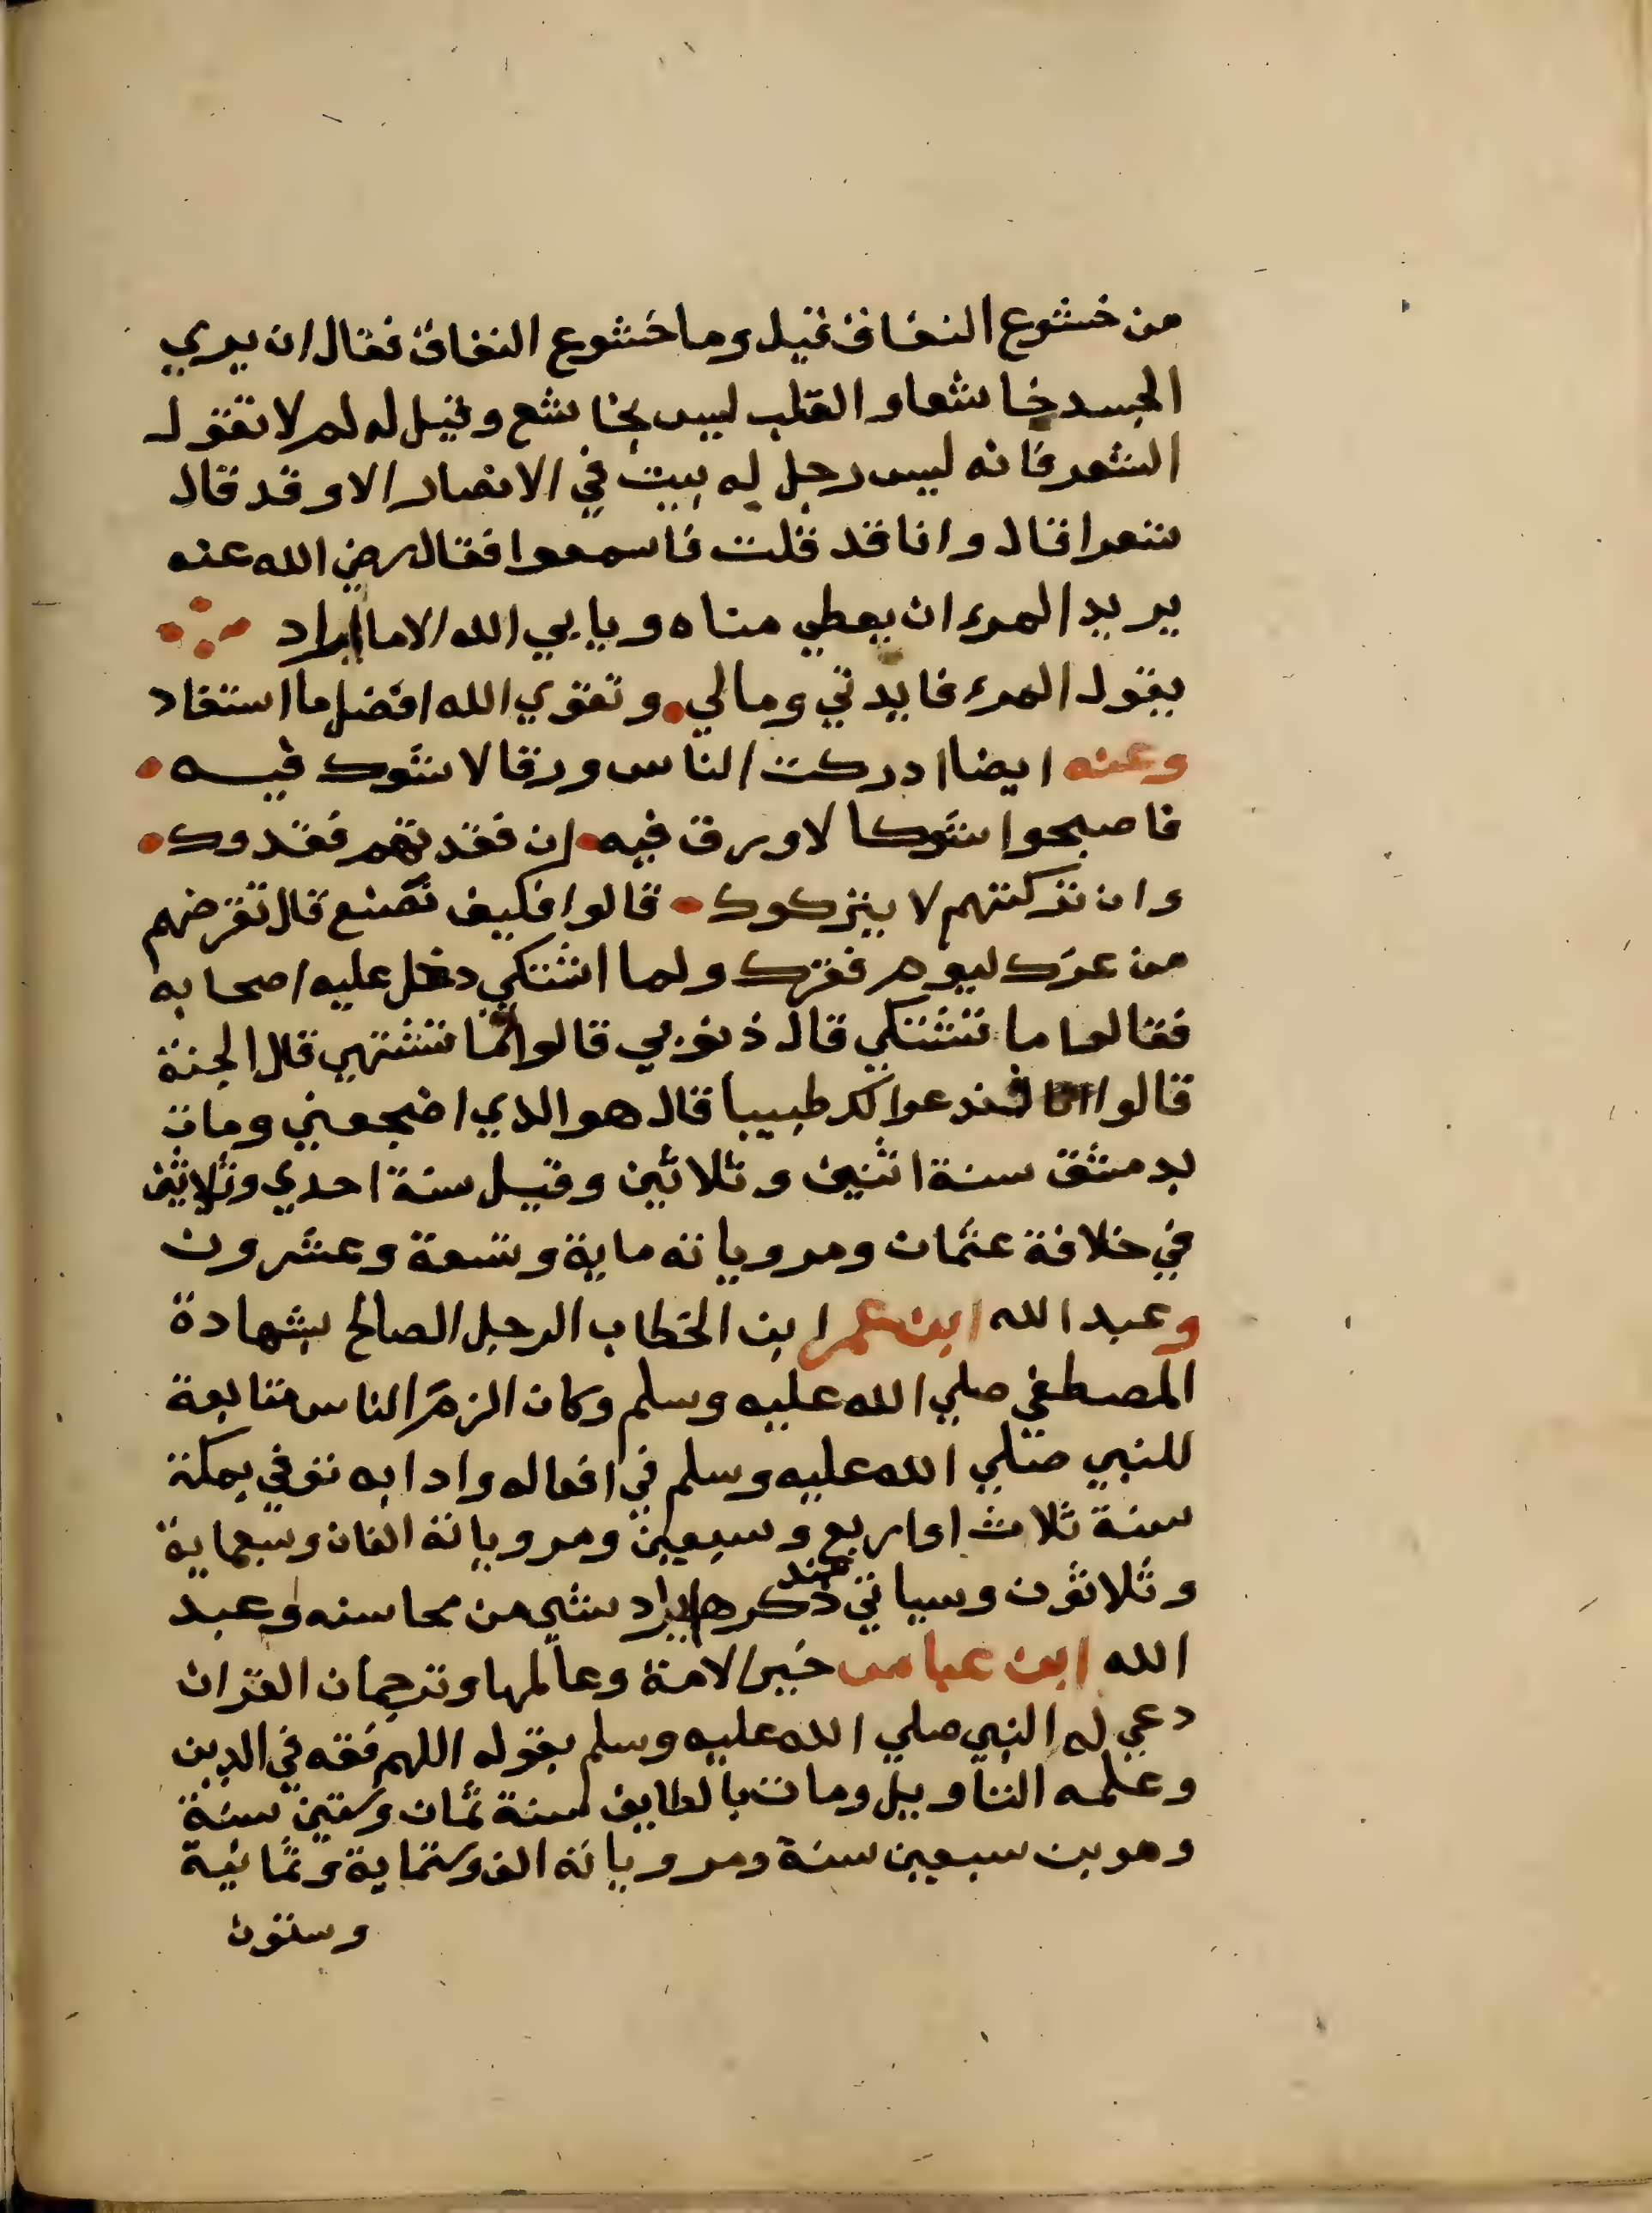 من خشوع النفاق قيل وما خشوع النفاق فقال ان يري
الجسد خاشعا والقلب ليس بخاشع وقيل له لم لا تقول
الشعر فانه ليس رجل له بيت في الانصار الا وقد قال
شعرا قال وانا قد قلت فاسمعوا فقال رضي الله عنه
يريد المرء ان يعطي مناه ويابي الله الا ما اراد
يقول المرء فايدتي ومالي وتقوي الله افضل ما استفاد
وعنه ايضا ادركت الناس ورقا لا شوك فيه
فاصبحوا شوكا لا ورق فيه ان فقدتهم فقدوك
وان تركتهم لا يتركوك قالوا فكيف نصنع قال تقرضهم
من عرضك ليوم فقرك ولما اشتكي دخل عليه اصحابه
فقالوا ما تشتكي قال ذنوبي قالوا فما تشتهي قال الجنة
قالوا فندعوا لك طبيبا قال هو الذي اضجعني ومات
بدمشق سنة اثنين وثلاثين وقيل سنة احدي وثلاثين
في خلافة عثمان ومروياته ماية وتسعة وعشرون
وعبد الله ابن عمر ابن الخطاب الرجل الصالح بشهادة
المصطفي صلي الله عليه وسلم وكان الزم الناس متابعة
للنبي صلي الله عليه وسلم في افعاله وادابه توفي بمكة
سنة ثلاث او اربع وسبعين ومروياته الفان وسبعماية
وثلاثون وسياتي عند ذكرها ايراد شي من محاسنه وعبد
الله ابن عباس حبر الامة وعالمها وترجمان القران
دعي له النبي صلي الله عليه وسلم بقوله اللهم فقه في الدين
وعلمه التاويل ومات بالطايف سنة ثمان وستين سنة
وهو بن سبعين سنة ومروياته الف وستماية وثمانية
وستون